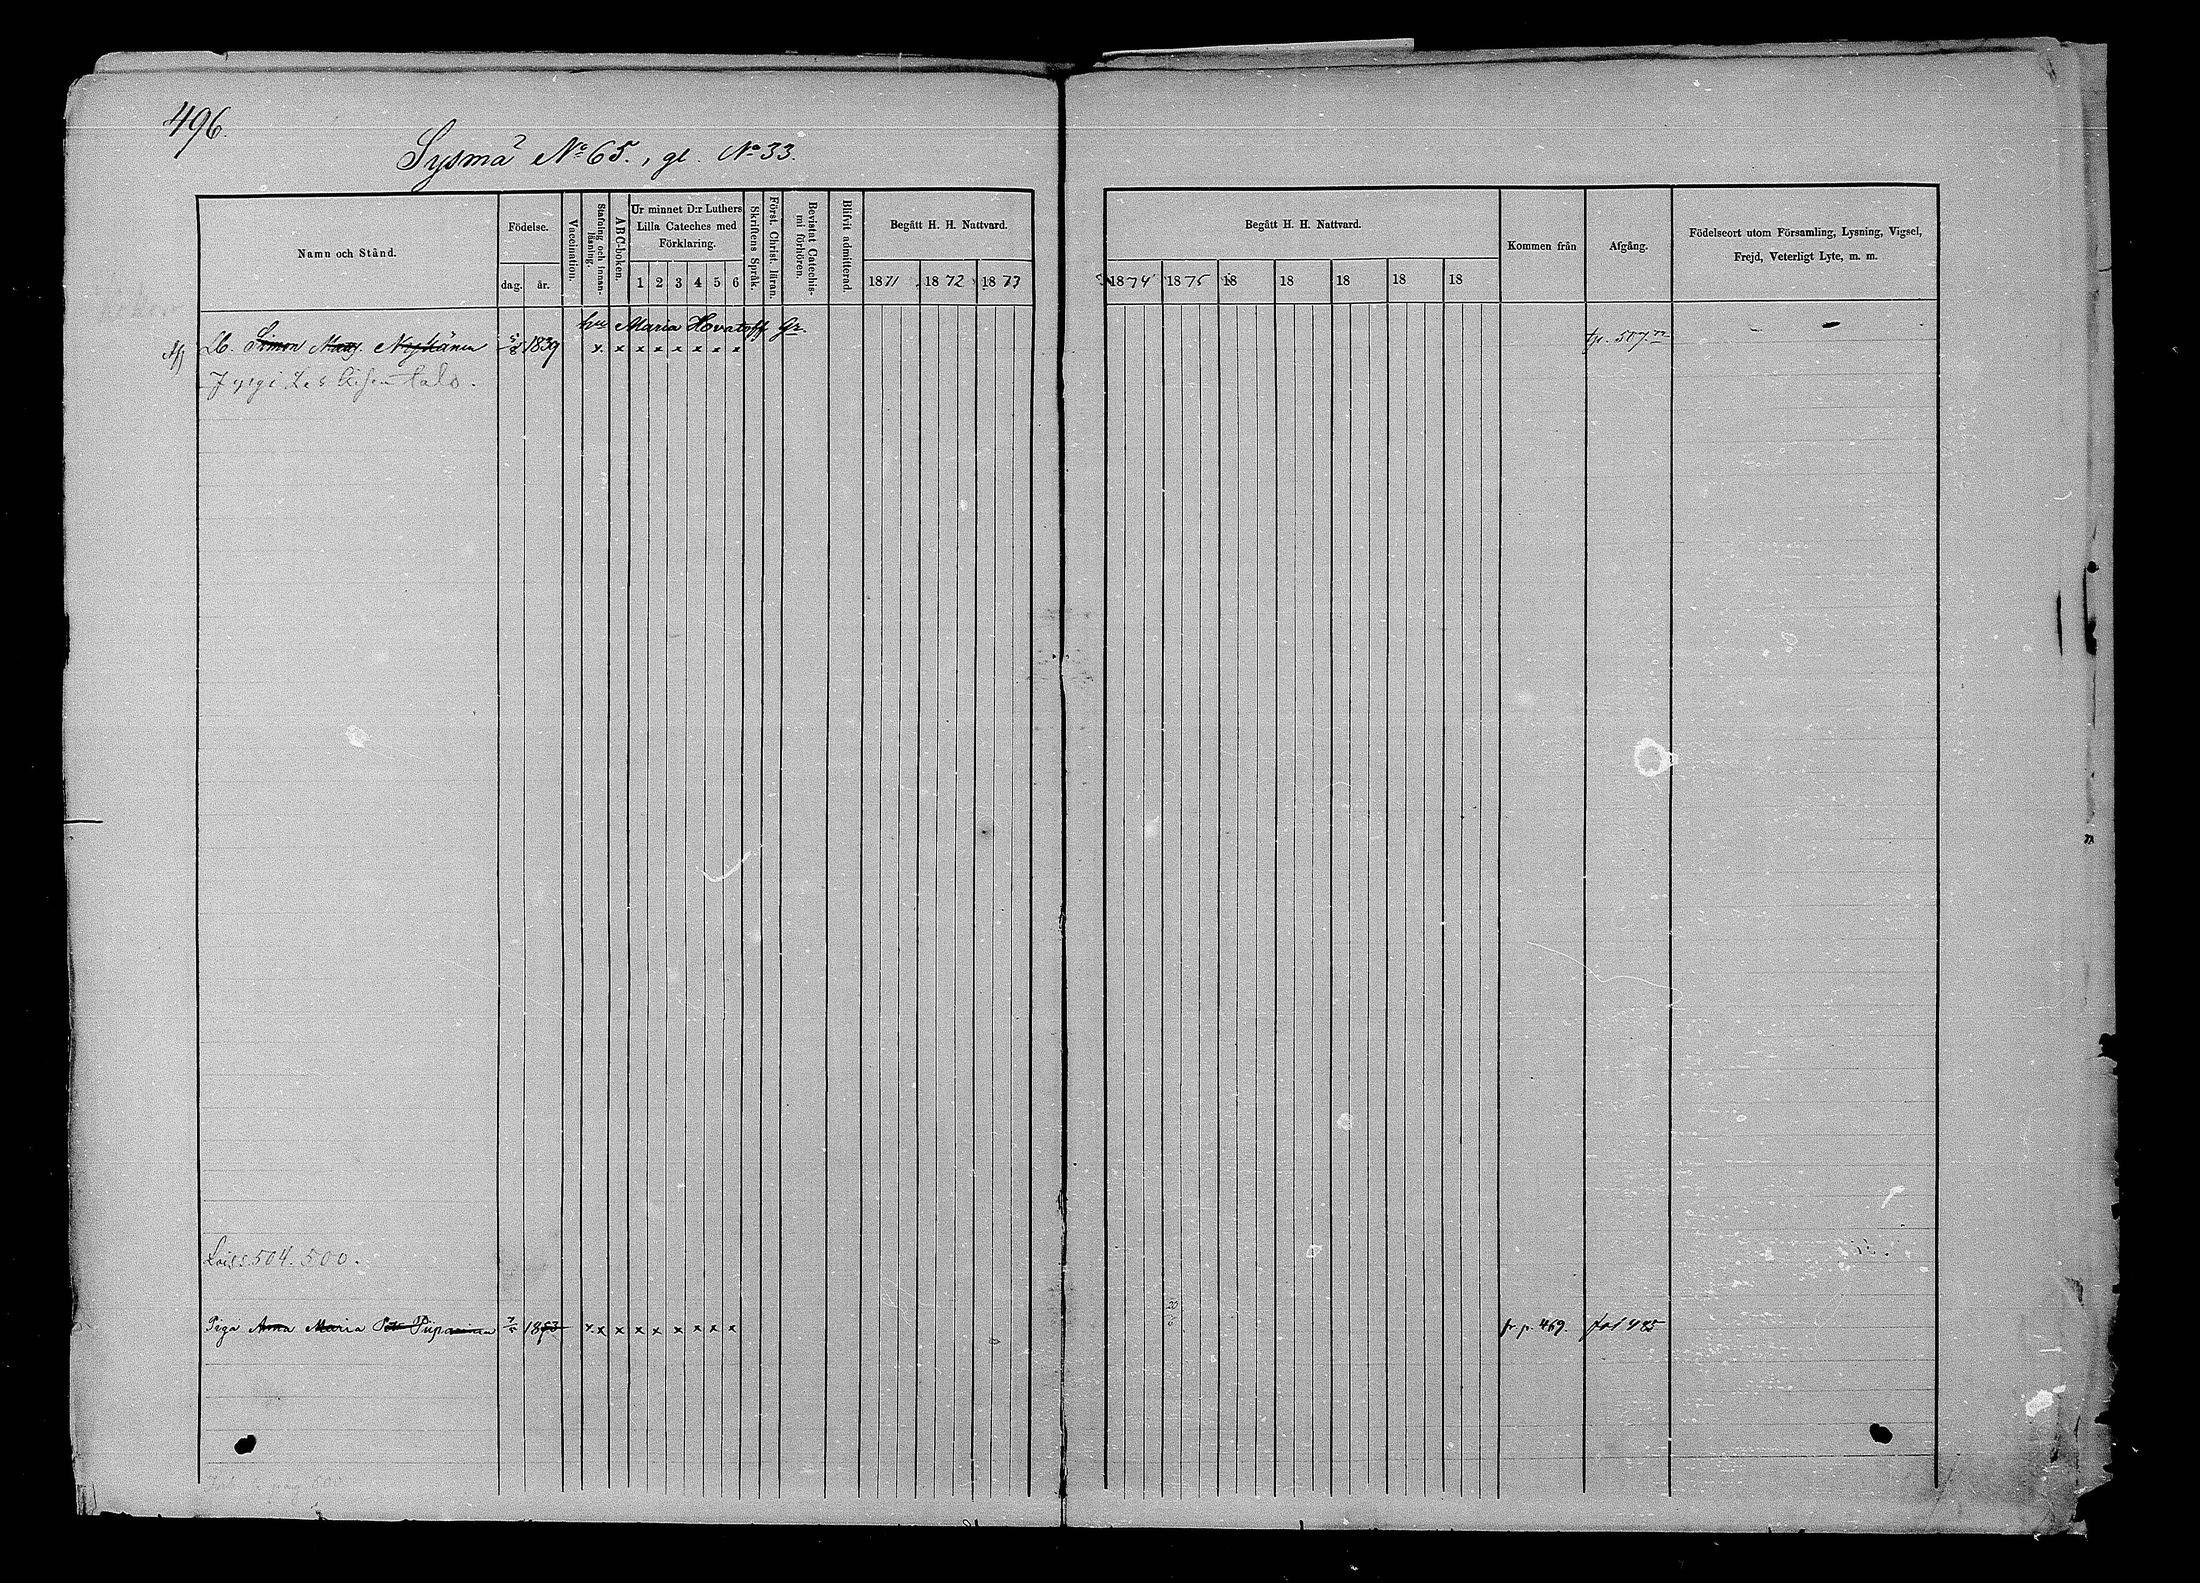 496.
Sysmä No 65., gl. No 33.
Namn och Stånd.
Födelse.
dag. år.
Vaccination.
Stafning och Innanläsning.
ABC-boken.
Ur minnet D:r Luthers Lilla Cateches med Förklaring.
1 2 3 4 5 6
Skriftens Språk.
Först. Christ. läran.
Bevistat Catechismi förhören.
Blifvit admitterad.
Begått H. H. Nattvard.
1871 1872 1873
Begått H. H. Nattvard.
1874 1875 18 18 18 18 18
Kommen från
Afgång.
Födelseort utom Församling, Lysning, Vigsel,
Frejd, Veterligt Lyte, m. m.
Maria Hovatoff Gr.
Lb. Simon Matts. Nykänen 5/8 1839 x x x x x x x x 507.
talo.
504. 500.
Piga Anna Maria Piiparinen 1853 x x x x x x x x x fr. p. 469. 485